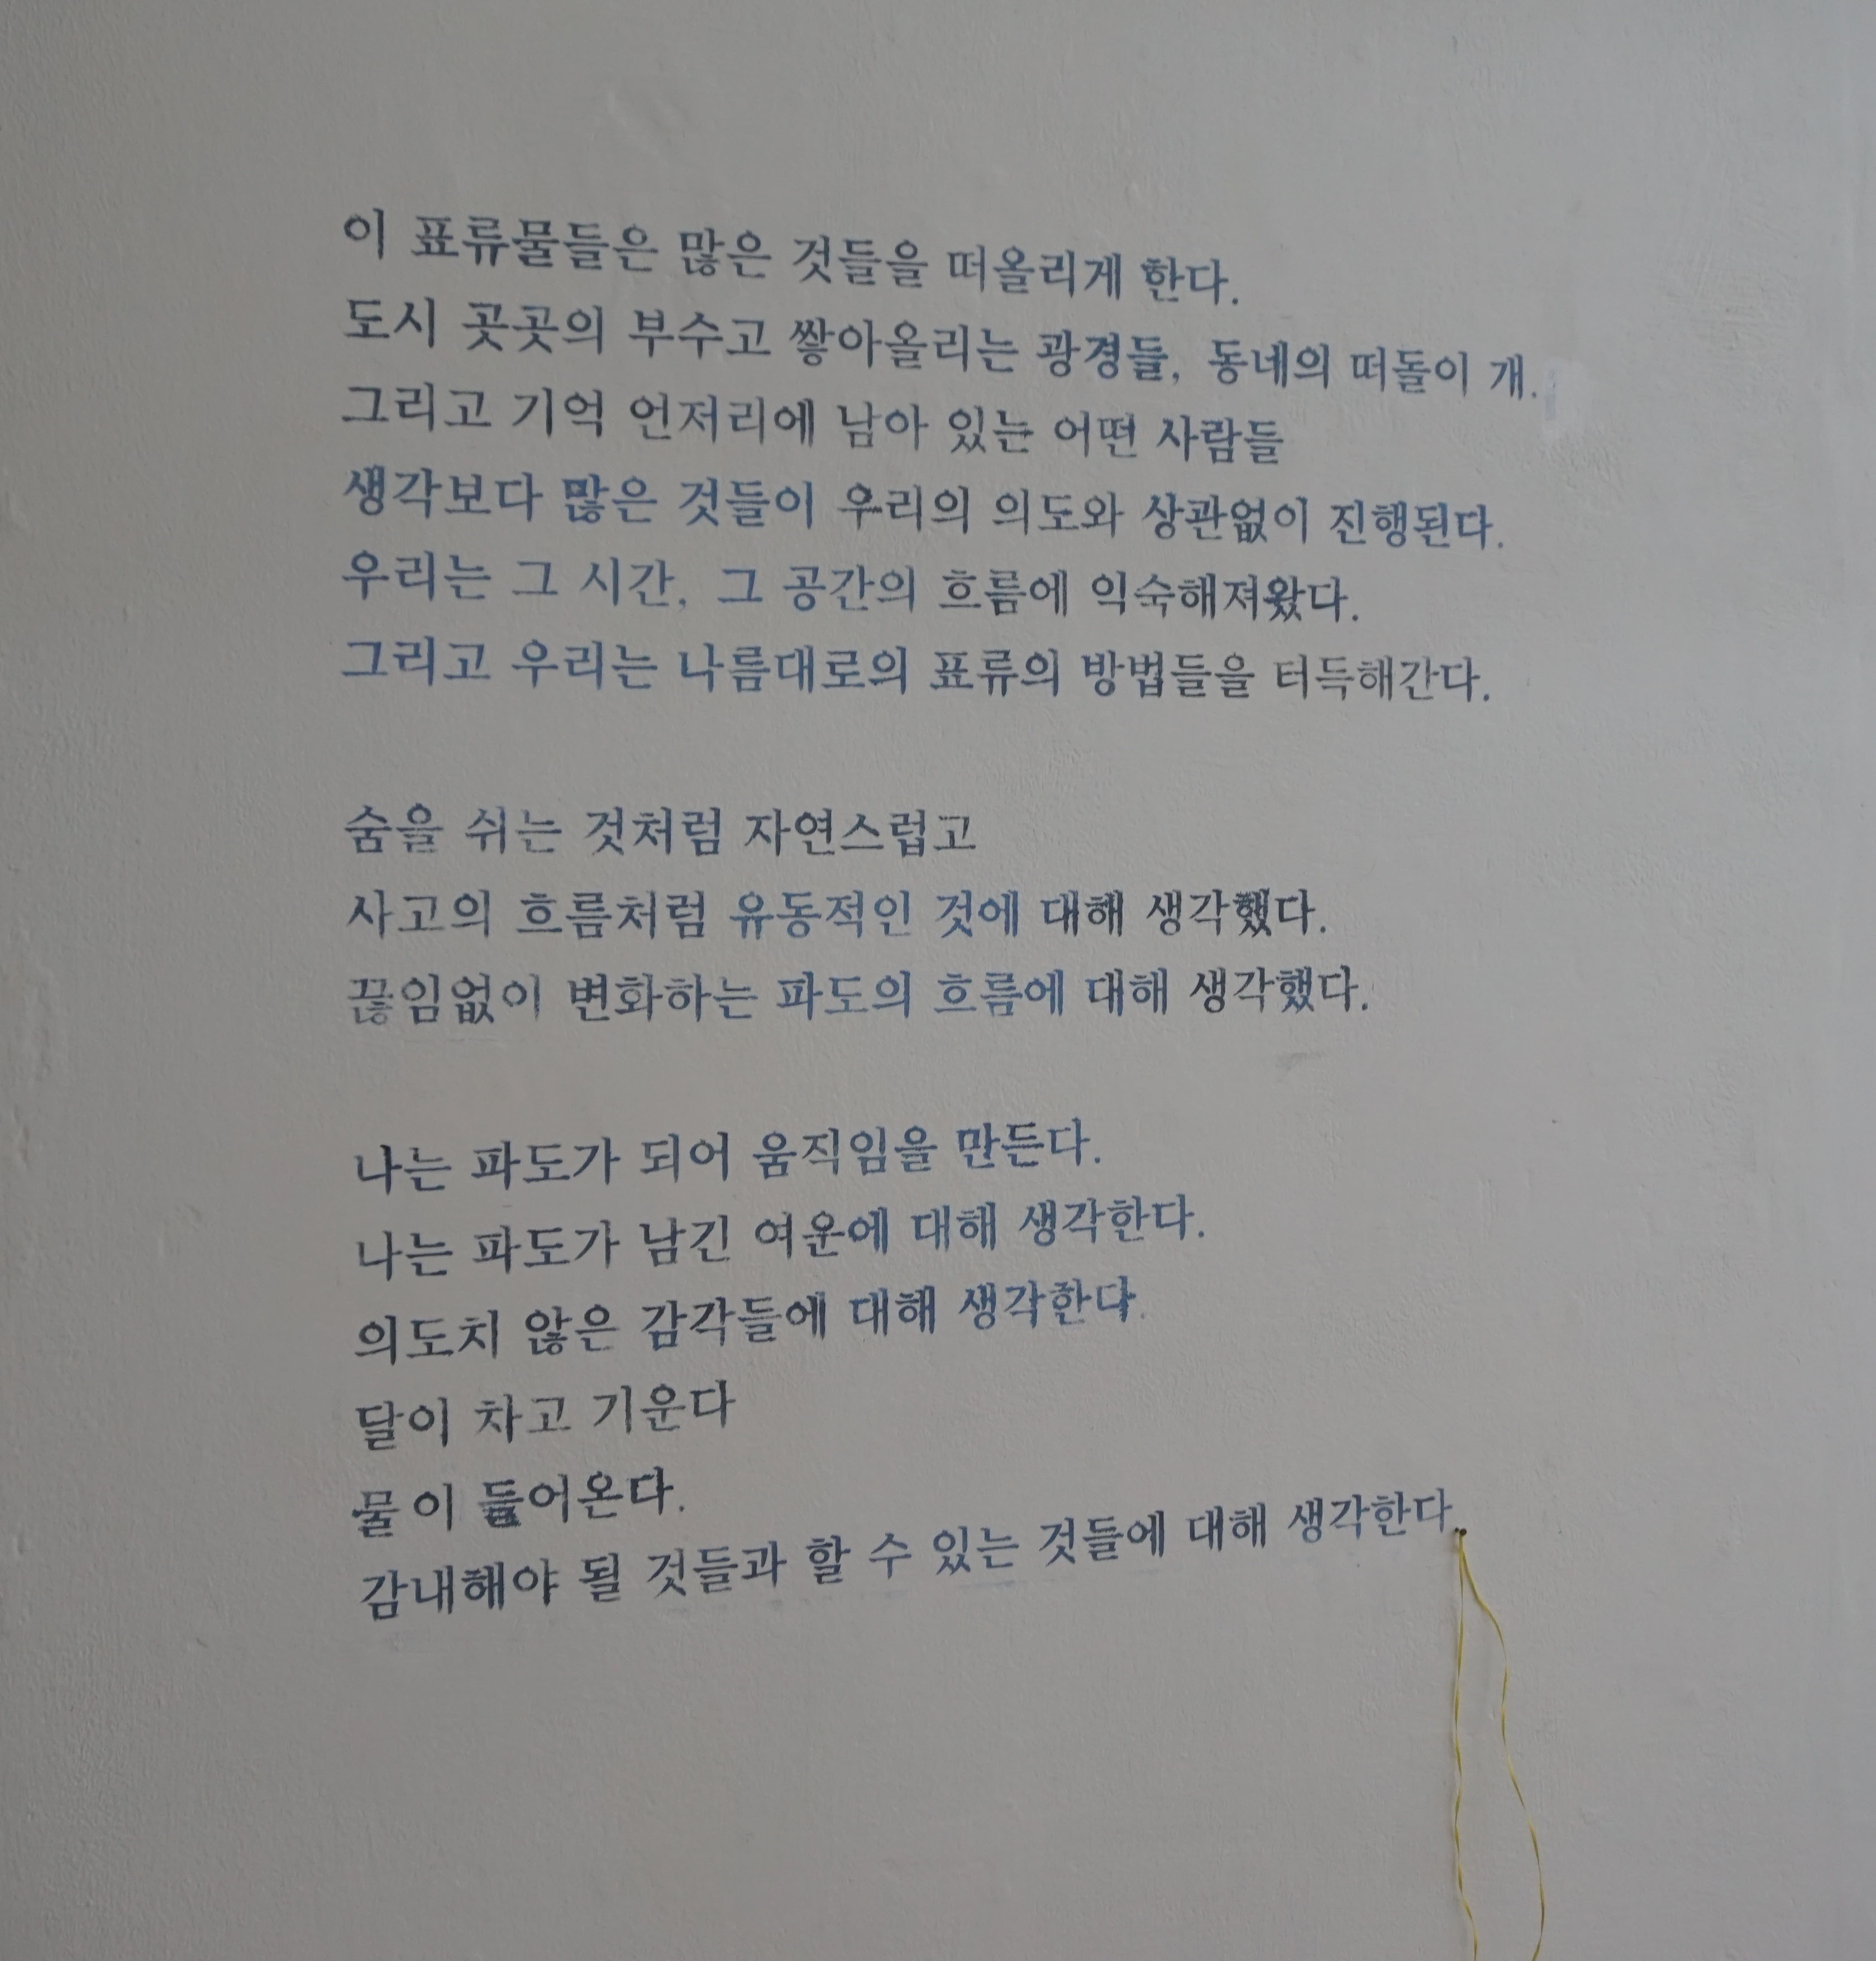 이 표류물들은 많은 것들을 떠올리게 한다.
도시 곳곳의 부수고 쌓아올리는 광경들, 동네의 떠돌이 개.
그리고 기억 언저리에 남아 있는 어떤 사람들
생각보다 많은 것들이 우리의 의도와 상관없이 진행된다.
우리는 그 시간, 그 공간의 흐름에 익숙해져왔다.
그리고 우리는 나름대로의 표류의 방법들을 터득해간다.
숨을 쉬는 것처럼 자연스럽고
사고의 흐름처럼 유동적인 것에 대해 생각했다.
끊임없이 변화하는 파도의 흐름에 대해 생각했다.
나는 파도가 되어 움직임을 만든다.
나는 파도가 남긴 여운에 대해 생각한다.
의도치 않은 감각들에 대해 생각한다.
달이 차고 기운다
물이 들어온다.
감내해야 될 것들과 할 수 있는 것들에 대해 생각한다.